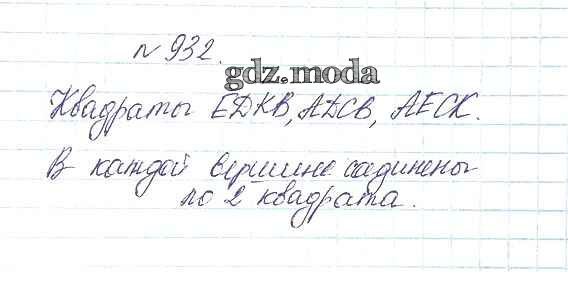 № 932.
gdz.moda
Квадраты EDKB, ADCB, AECK.
В каждой вершине садинены
по 2 квадрата.